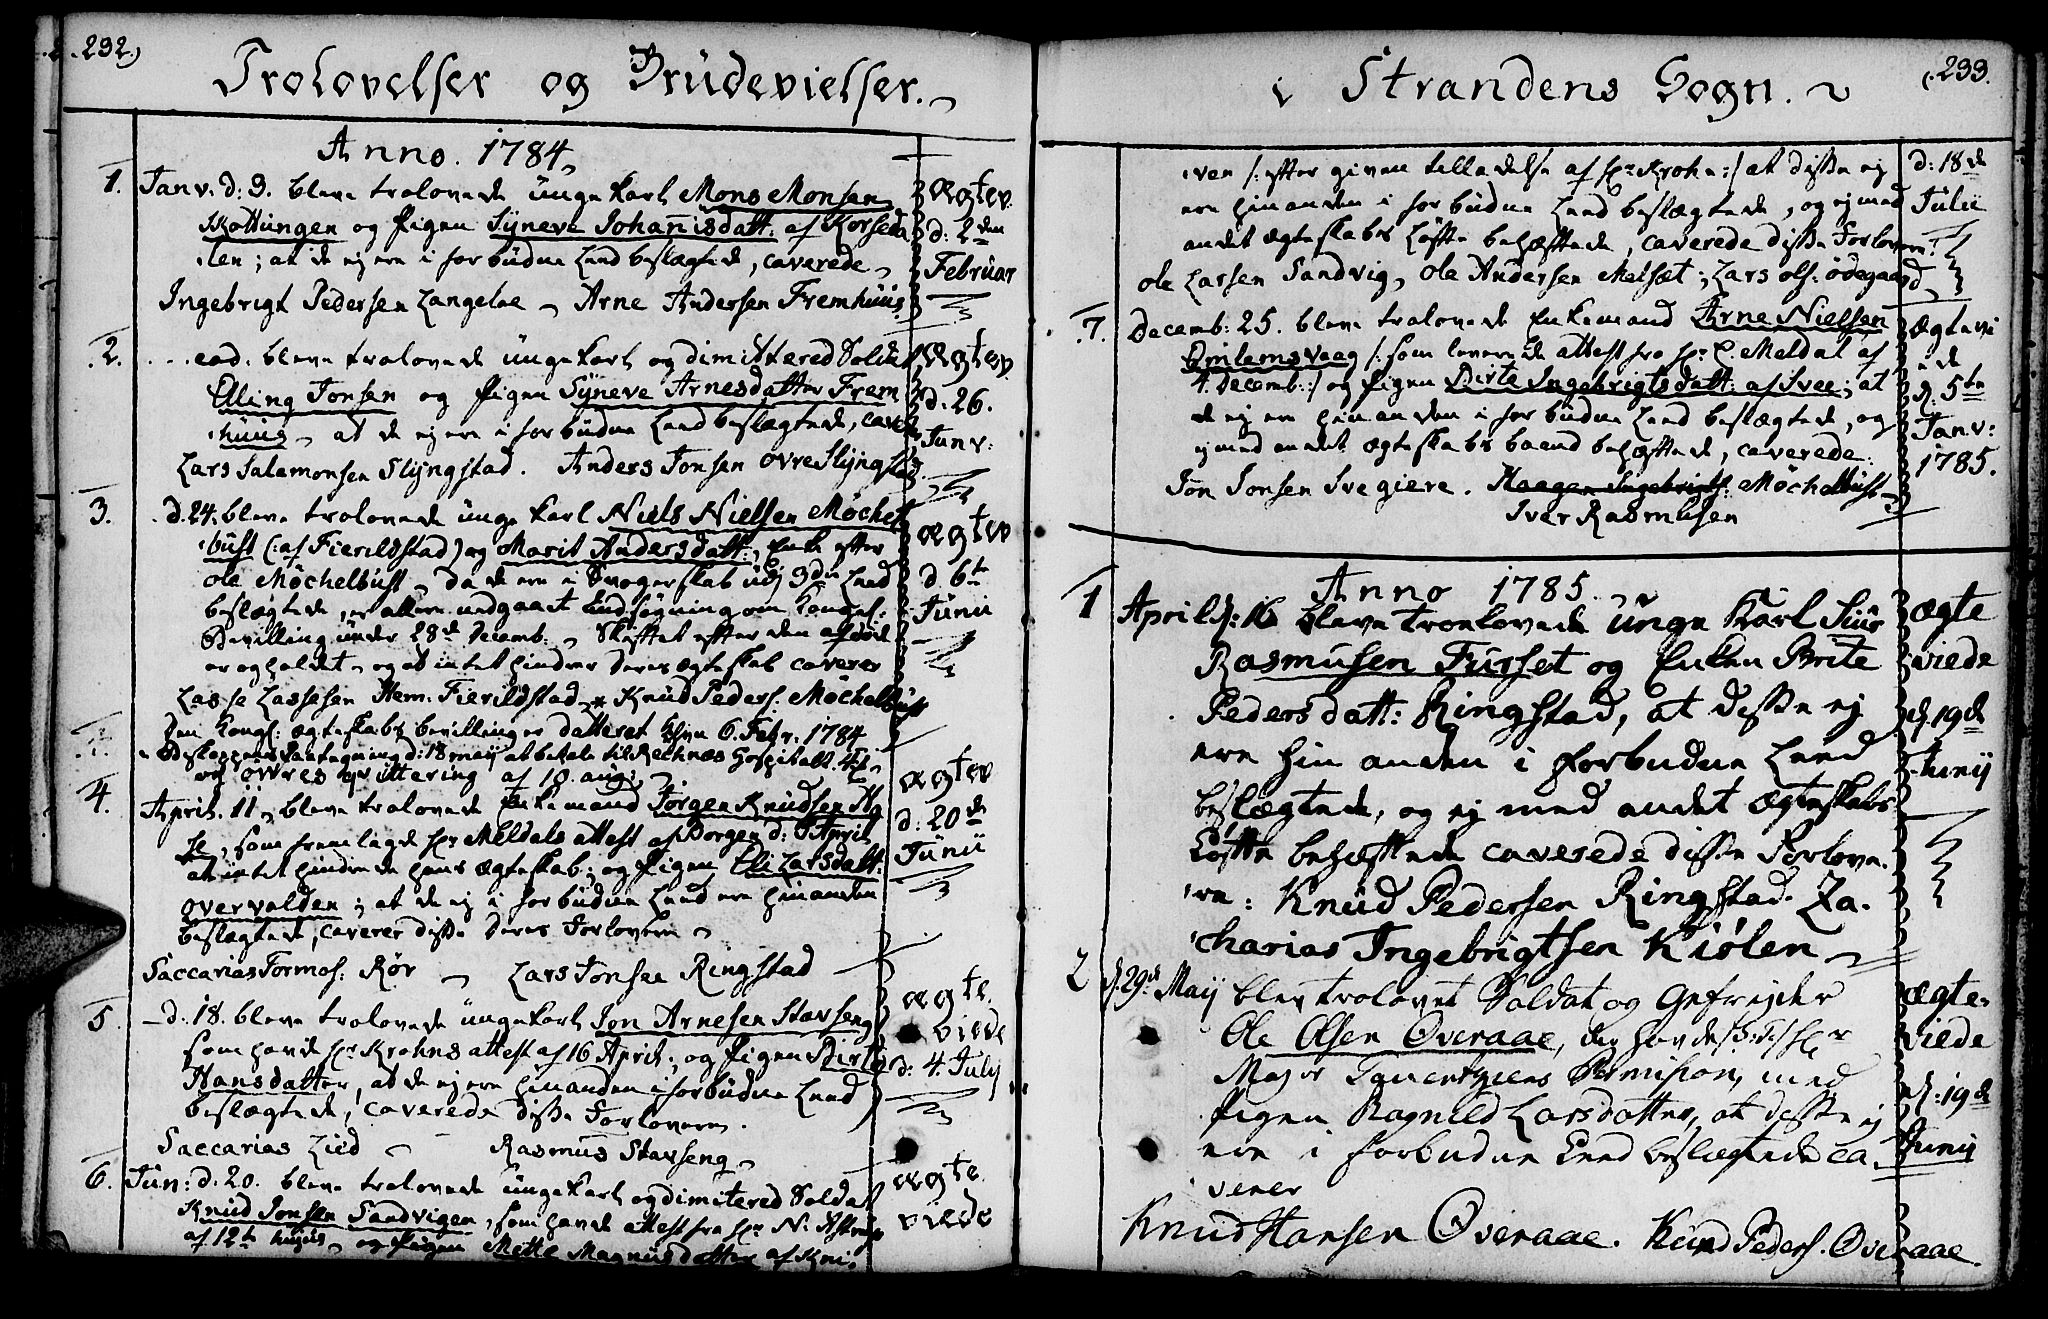 232.)
Trolovelser og Brudevielser.
Anno. 1784
1. Janv. d: 3. bleve trolovede unge karl Mons Monsen
Skottungen og Pigen Syneve Johannisdatt: af Korseda
len; at de ej ere i forbudne Leed beslægtede, caverede
Ingebrigt Pedersen Langeloe Arne Andersen Fremhuus.
ægtev.
d: 2den
Februar
2. ead. bleve trolovede unge karl og dimittered Soldat
Elling Jonsen og Pigen Syneve Arnesdatter Frem
huus, at de ej ere i forbudne Leed beslægtede, cavede
Lars Salamonsen Slyngstad. Anders Jonsen Ovre Slyngstad
ægtev.
d. 26.
Janv:
3. d. 24. bleve trolovede unge karl Niels Nielsen Møchel
bust (: af Fierildstad) og Marit Andersdatt: Enke efter
ole Møchelbust, da de ere i Svogerskab udj 3die Leed
beslægtede, er allern. undgaaet Kongel:
Bevilling under 28de Decemb: Skiftet efter den afdøde
er og holdet, og at intet hindrer deres ægteskab caverer
Lasse Lassesen Nem. Fierildstad * Knud Peders. Møchelbust
Den Kongl: ægteskabs bevilling er datteret Khvn 6. Febr. 1784
Biskoppens Paategning d: 18 maij at betale til Recknæs Hospital
og ovres qvittering af 10. aug:
ægtev
d 6te
Junii
4. April. 11. bleve trolovede Enkemand Jorgen Knudsen Ag
se, som fremlagde Hr Meldals attest af Borgen d: 6 April
at intet hindrede hans ægteskab; og Pigen Eli Larsdatt:
overvolden; at de ej i forbudne Leed ere hinanden
beslægtede, caverer disse deres Forlovere
Saccarias Tormos: Rør Lars Jonsen Ringstad
ægtev
d: 20de
Junii
5. d: 18. bleve trolovede unge karl Jon Arnesen Stavseng
som havde Hr Krohns attest af 16 April; og Pigen Birte
Hansdatter, at de ej ere hinanden i forbudne Leed
beslægtede, caverede disse Forlovere.
Saccarias Lied Rasmus Stavseng
ægte.
viede
d: 4. July
6. Jun: d. 20. bleve trolovede unge karl og dimitered Soldat
Knud Jonsen Sandvigen, som havde attest fra Hr N. Astrup
af 12te hujus, og Pigen Mette Magnusdatter af Kni
ægte.
viede
233.
i Strandens Sogn.
ven /: efter given tilladelse af Hr Krohn :/ at disse ej
ere hinanden i forbudne Leed beslægtede, og ej med
andet ægteskabs Løfte behæftede, caverede disse Forlovere:
Ole Larsen Sandvig, Ole Andersen Melsæt, Lars ols: Ødegaard
d: 18de
Julii
7. Decemb: 25. bleve trolovede Enkemand Arne Nielsen
Emlemsvaag /: som leverede attest fra Hr C. Meldal af
4. Decemb: :/ og Pigen Birte Ingebrigtsdatt: af Ivee; at
de ej ere hinanden i forbudne Leed beslægtede, og
ej med andet ægteskabs baand behæftede, caverede
Jon Jonsen Ivegiere. Haagen Ingebrigts: Møchelbust
Iver Rasmusen
Ægtevi
ede
d. 5te
Janv:
1785.
Anno 1785.
1 April d: 16 bleve troelovede unge Karl Siur
Rasmusen Furset og Enken Brite
Pedersdatt: Ringstad, at disse ej
ere hinanden i forbudne Leed
beslægtede, og ej med andet Ægteskabs
Løfte behæftede caverede disse Forlove-
re: Knud Pedersen Ringstad. Za-
charias Ingebrigtsen Kiølen
Ægte
viede
d. 19de
Junij
2 d. 29de Maij blev trolovet Soldat og Gefrejder
Ole Olsen Overaae, der havde Hr
Major Permision, med
Pigen Ragnild Larsdatter, at disse ej
ere i forbudne Leed beslægtede ca-
verer
Knud Hansen Overaae. Knud Peders. Overaae
Ægte-
viede
d: 19de
Junij